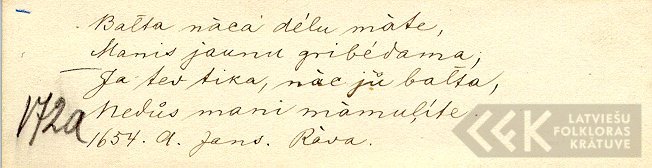 Bałta nāca dēlu māte,
Manis jaunu gribēdama;
Ja tev tika, nāc jū bałta,
Nedūs mani māmuļīte.
172a
1654. A. Jans. Rāva.
LATVIEŠU
FOLKLORAS
KRĀTUVE